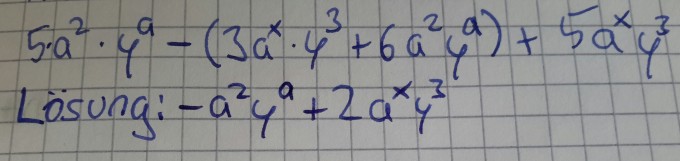 5·a² · y^a − (3a^x · y³ + 6a²y^a) + 5a^x y³
Lösung: −a²y^a + 2a^x y³